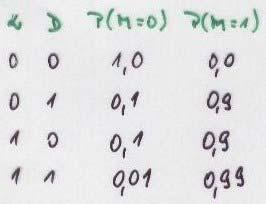 L D P(M=0) P(M=1)
0 0 1,0 0,0
0 1 0,1 0,9
1 0 0,1 0,9
1 1 0,01 0,99